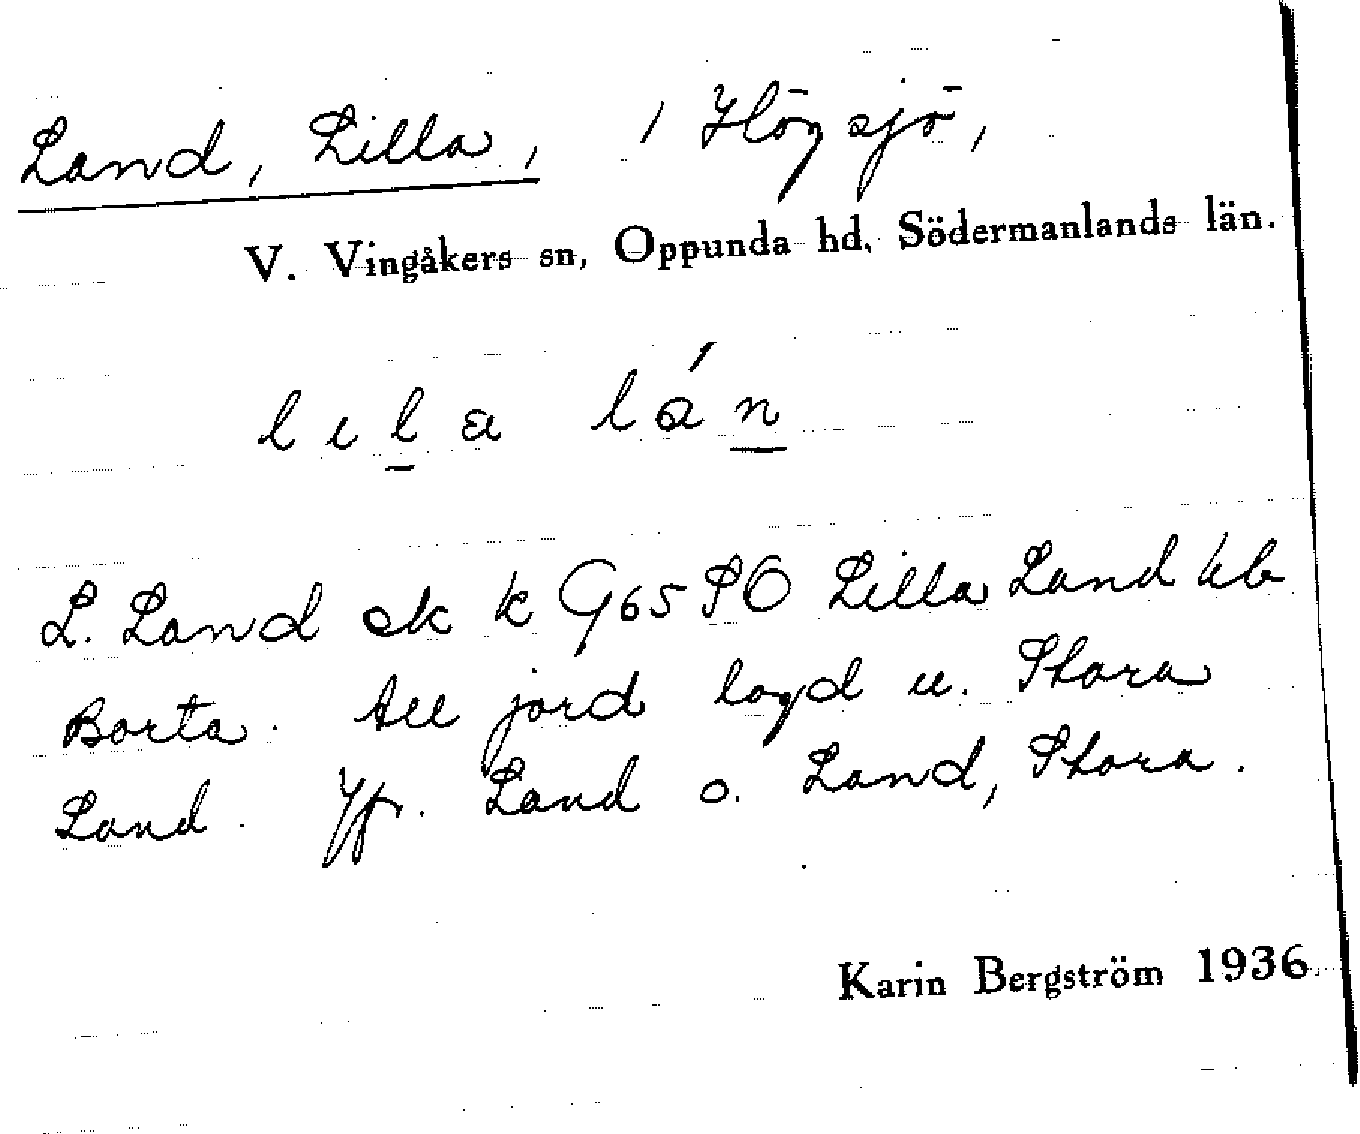 Land, Lilla, / Högsjö,
V. Vingåkers sn, Oppunda hd, Södermanlands län.
lıla lán
L. Land ek k G65 SO Lilla Land kb
Borta. All jord lagd u. Stora
Land. Jfr. Land o. Land, Stora.
Karin Bergström 1936.